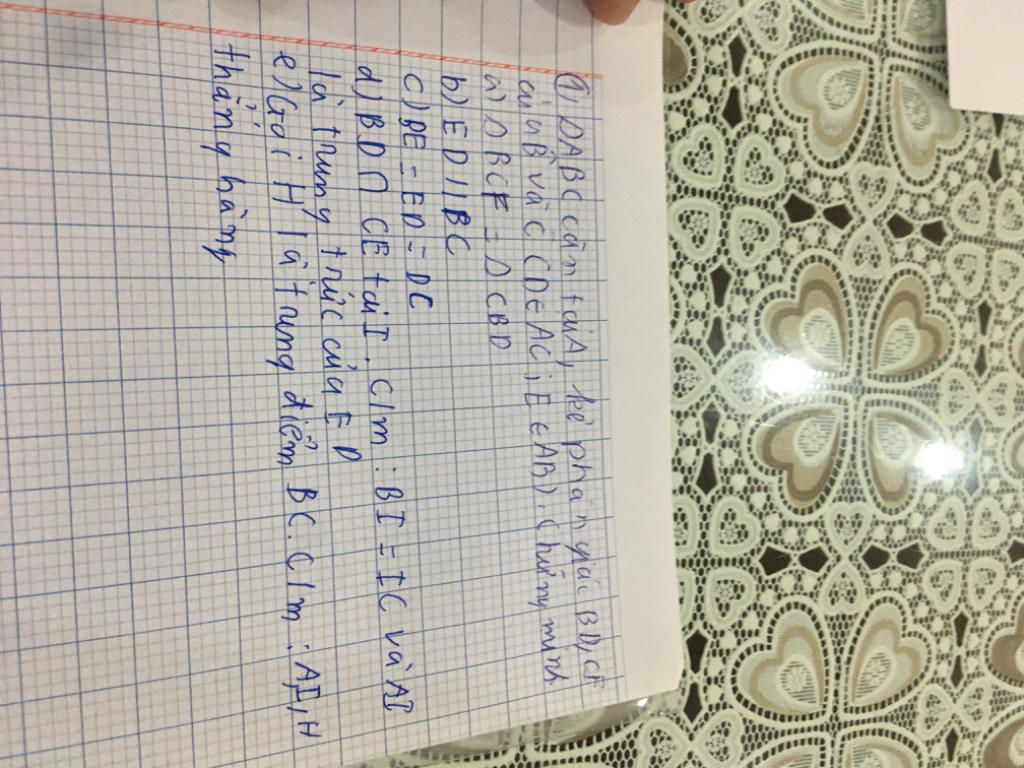 1) ΔABC cân tại A, kẻ phân giác BD, CE
của B̂ và Ĉ (D ∈ AC; E ∈ AB). Chứng minh
a) Δ BCE = Δ CBD
b) ED // BC
c) BE = ED = DC
d) BD ∩ CE tại I. C/m : BI = IC và AI
là trung trực của ED
e) Gọi H là trung điểm BC. C/m : A, I, H
thẳng hàng